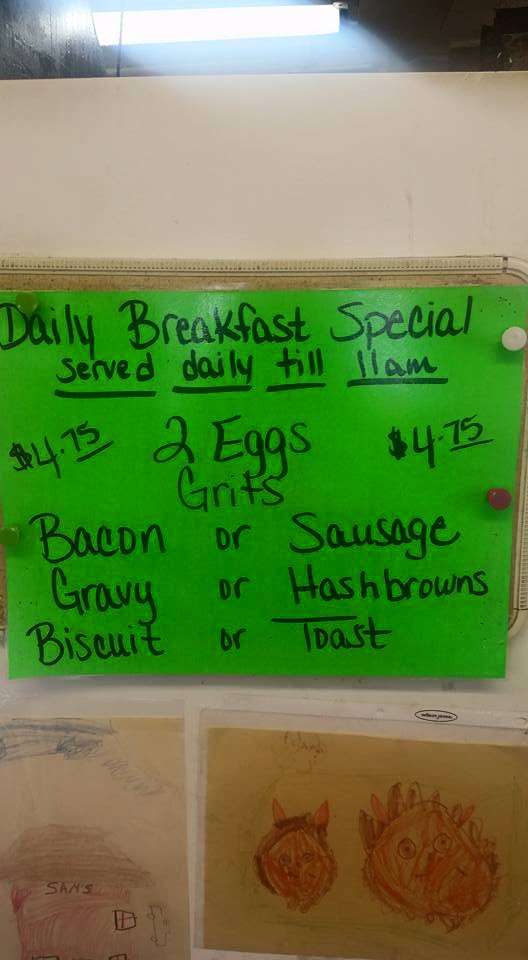 Daily Breakfast Special
served daily till 11am
$4.75 2 Eggs $4.75
Grits
Bacon or Sausage
Gravy or Hashbrowns
Biscuit or Toast
SAM'S